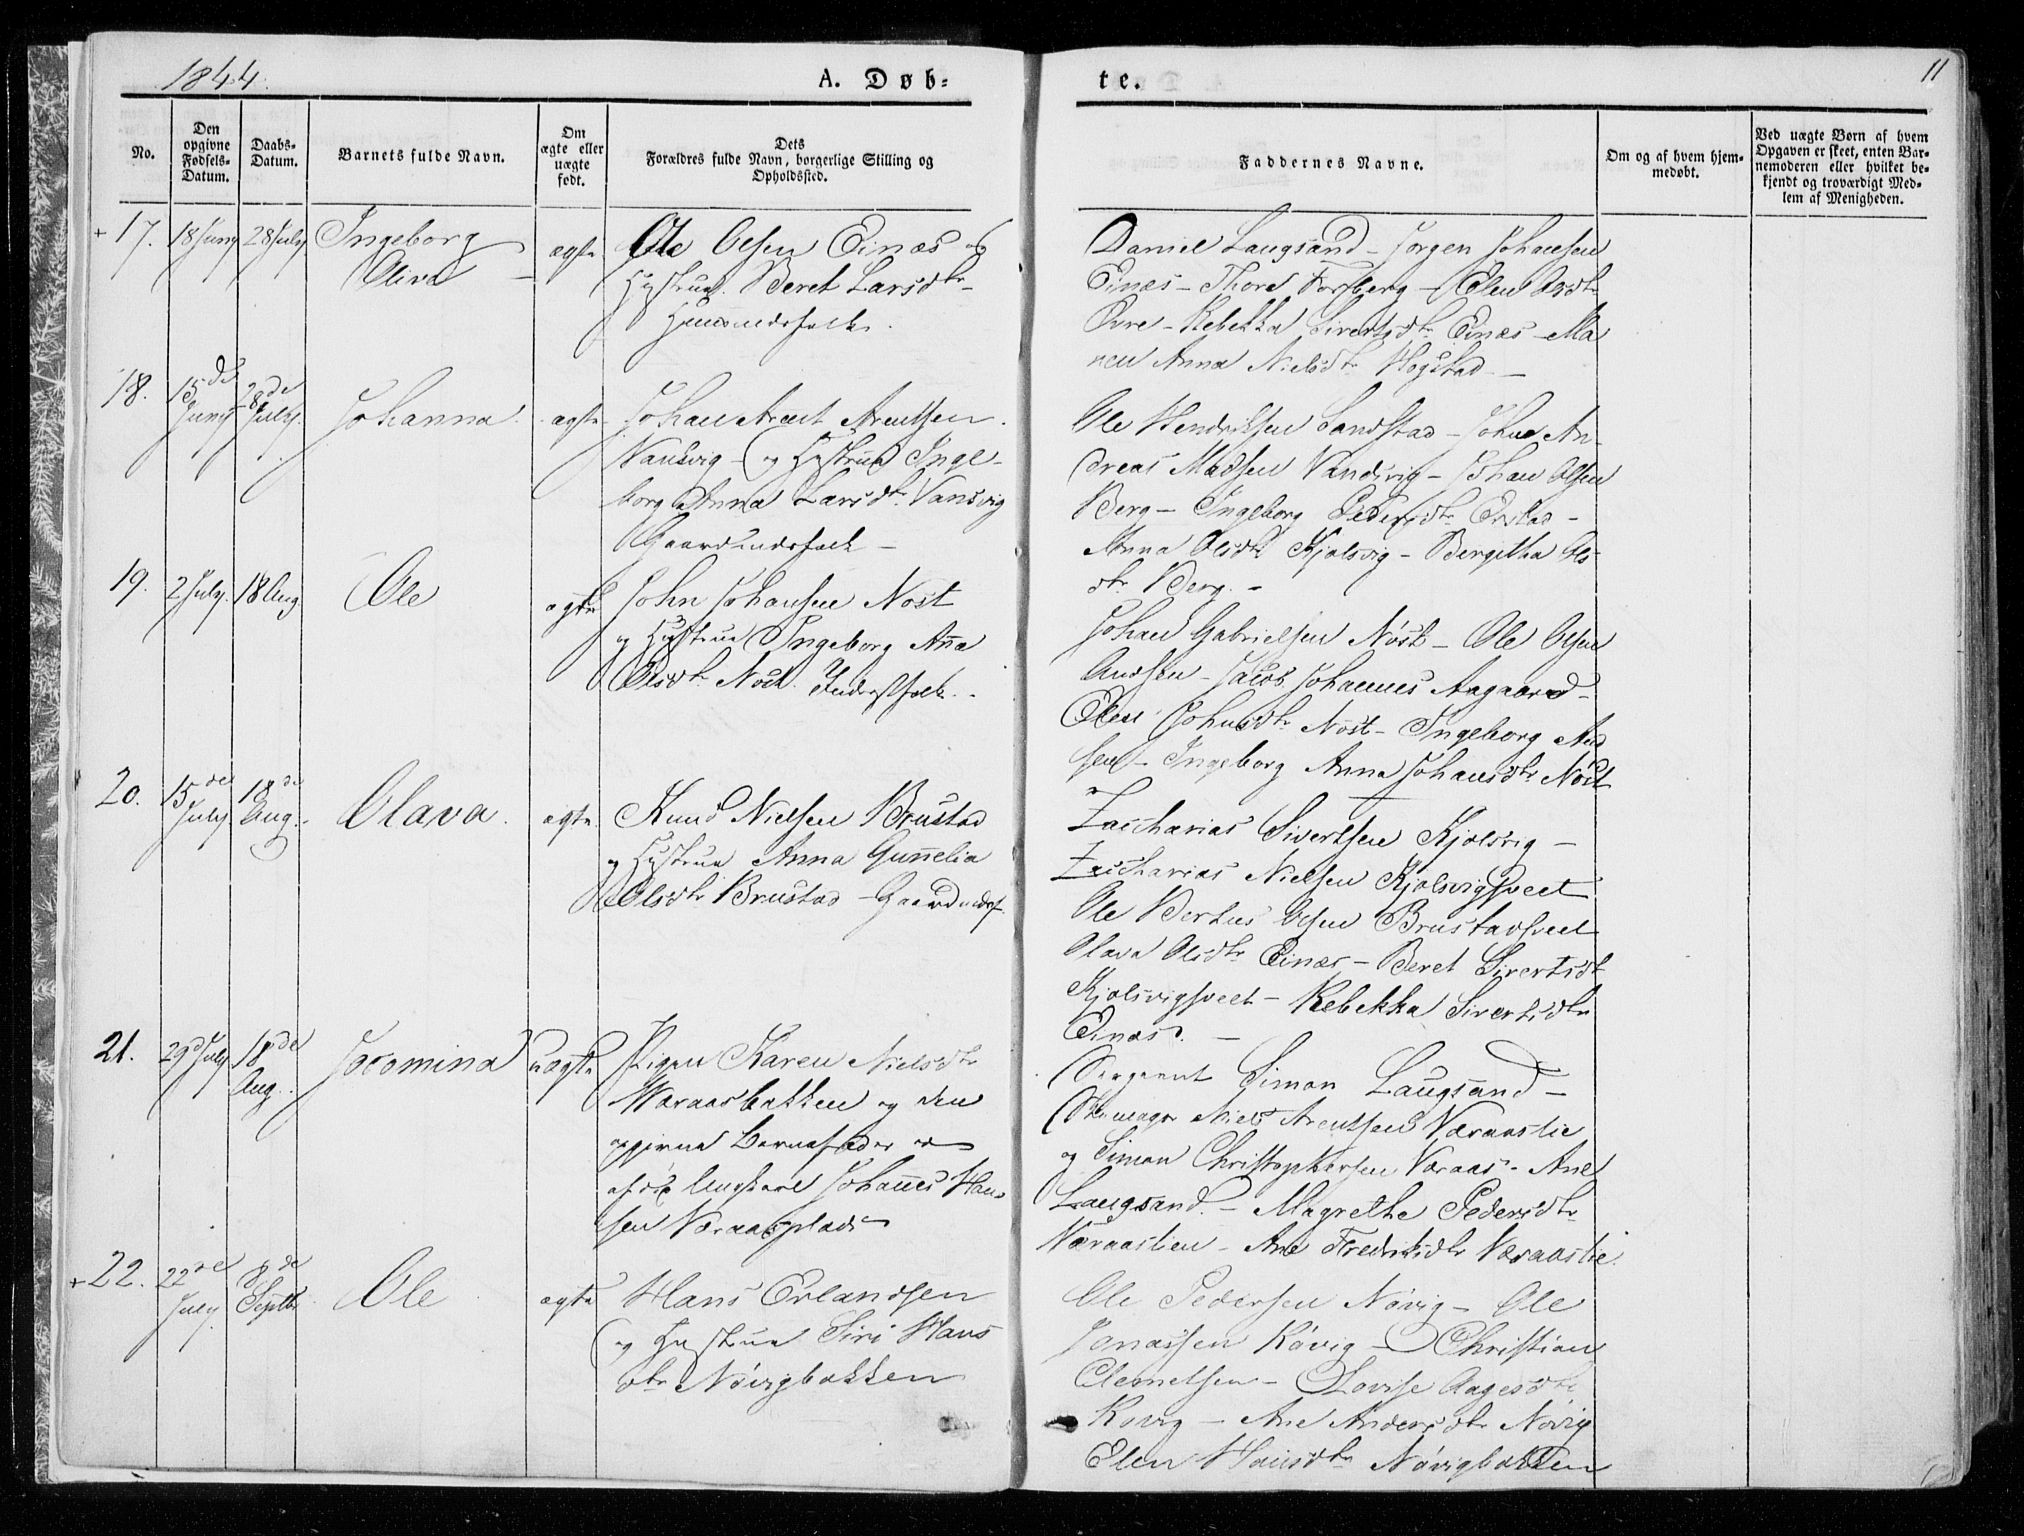 1844.
A. Døb=
te.
11
No.
Den opgivne Fødsels-Datum.
Daabs-Datum.
Barnets fulde Navn.
Om ægte eller uægte født.
Dets Forældres fulde Navn, borgerlige Stilling og Opholdssted.
Faddernes Navne.
Om og af hvem hjemmedøbt.
Ved uægte Børn af hvem Opgaven er skeet, enten Barnemoderen eller hvilket bekjendt og troværdigt Medlem af Menigheden.
+ 17. 18 Juny 28 July Ingeborg Oliva ægte Ole Olsen Einæs og
Hustrue Beret Larsdtr
Huusmandsfolk.
Daniel Laugsand - Jørgen Johansen
Einæs - Thore Forsberg - Elen Olsdtr
Øvre - Rebekka Sivertsdtr Einæs - Ma
ren Anna Nielsdtr Hogstad -
18. 15de Juny 28de July. Johanna. ægte Johan Arent Arentsen
Vansvig - og Hustrue Inge-
borg Anna Larsdtr Vansvig
Gaardmandsfolk -
Ole Hendriksen Sandstad - Johan An-
dreas Madsen Vandsvig - Johan Olsen
Berg - Ingeborg Pedersdtr Erstad -
Anna Olsdtr Kjølsvig - Bergitha Ols-
dtr Berg. -
19. 2 July. 18 Aug. Ole ægte John Johansen Nøst
og Hustrue Ingeborg Anna
Olsdtr Nøst. Inderstfolk. -
Johan Gabrielsen Nøst - Ole Olsen
Andsen - Jacob Johannes Aagaard -
Elen Johnsdtr Nøst - Ingeborg And
sen - Ingeborg Anna Johansdtr Nøst
20. 15de July. 18de Aug. Olava. ægte Knud Nielsen Brustad
og Hustrue Anna Gunnelia
Olsdtr Brustad - Gaardmdsf.
Zacharias Sivertsen Kjølsvig -
Zacharias Nielsen Kjølsvigsveet
Ole Bertus Olsen Brustadsveet
Olava Olsdtr Einæs - Beret Sivertsdtr
Kjølsvigsveet - Rebekka Sivertsdtr
Einæs. -
21. 29d July 18de Aug. Jocomina uægte Pigen Karen Nielsdtr
Waraasbakken og den
opgivne Barnefader er
Ungkarl Johannes Han-
sen Væraasplads
Sergeant Simon Laugsand -
Skomager Niels Arentsen Væraaslie
og Simon Christophersen Væraas - Ane
Laugsand. - Magrethe Pedersdtr
Væraaslien - Ane Fredriksdtr Væraaslie.
+ 22. 22de July. 8de Septbr. Ole ægte Hans Erlandsen
og Hustrue Siri Hans
dtr Nøvigbakken
Ole Pedersen Nøvig - Ole
Jonassen Røvig - Christian
Clemetsen - Lovise Aagesdtr
Røvig - Ane Andersdtr Nøvig
Elen Hansdtr Nøvigbakken